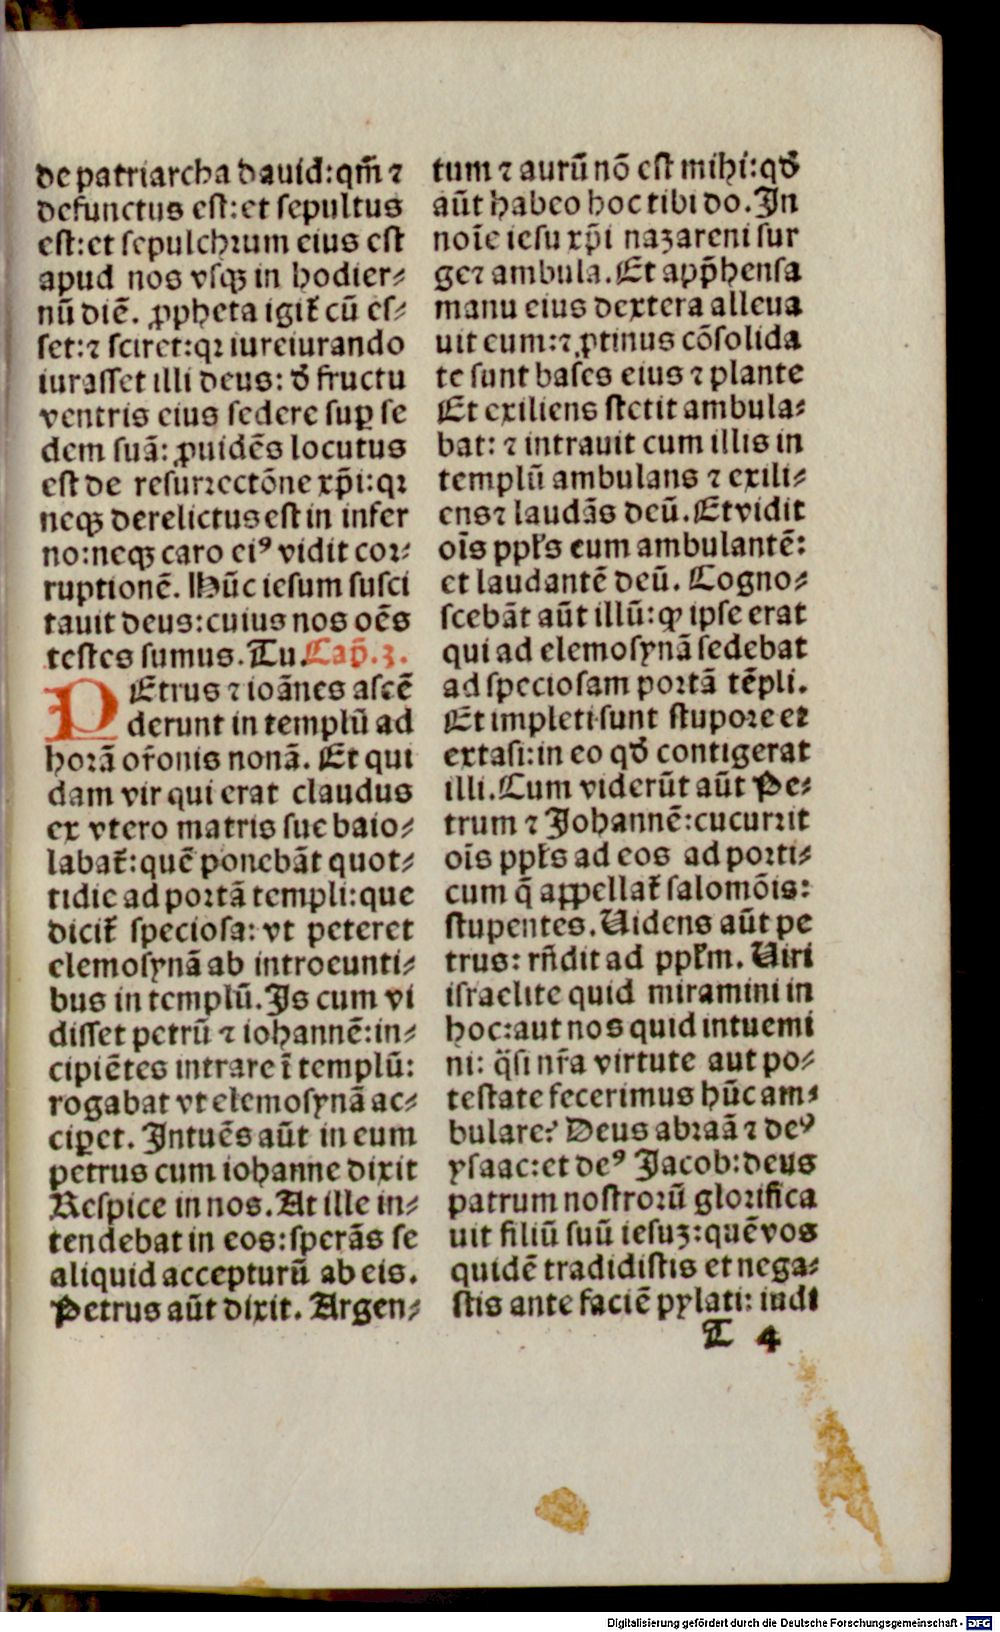 de patriarcha dauid: qm̄ ⁊
defunctus est: et sepultus
est: et sepulchꝛum eius est
apud nos vsqꝫ in hodier⸗
nū diē. ꝓpheta igit᷑ cū es⸗
set: ⁊ sciret: qꝛ iureiurando
iurasset illi deus: đ fructu
ventris eius sedere suꝑ se
dem suā: ꝓuidēs locutus
est de resurꝛectōne xp̄i: qꝛ
neqꝫ derelictus est in infer
no: neqꝫ caro eiꝰ vidit coꝛ⸗
ruptionē. Hūc iesum susci
tauit deus: cuius nos oēs
testes sumus. Tu. Cap̄. 3.
PEtrus ⁊ ioānes ascē
derunt in templū ad
hoꝛā or̄onis nonā. Et qui
dam vir qui erat claudus
ex vtero matris sue baio⸗
labat᷑: quē ponebāt quot⸗
tidie ad poꝛtā templi: que
dicit᷑ speciosa: vt peteret
elemosynā ab introeunti⸗
bus in templū. Is cum vi
disset petrū ⁊ iohannē: in⸗
cipiētes intrare ī templū:
rogabat vt elemosynā ac⸗
ciꝑet. Intuēs aūt in eum
petrus cum iohanne dixit
Respice in nos. At ille in⸗
tendebat in eos: sperās se
aliquid accepturū ab eis.
Petrus aūt dixit. Argen⸗
tum ⁊ aurū nō est mihi: qđ
aūt habeo hoc tibi do. In
noīe iesu xp̄i nazareni sur
ge ⁊ ambula. Et app̄hensa
manu eius dextera alleua
uit eum: ⁊ ꝓtinus cōsolida
te sunt bases eius ⁊ plante
Et exiliens stetit ambula⸗
bat: ⁊ intrauit cum illis in
templū ambulans ⁊ exili⸗
ens ⁊ laudās deū. Et vidit
oīs ppl̄s eum ambulantē:
et laudantē deū. Cogno⸗
scebāt aūt illū: ꝙ ipse erat
qui ad elemosynā sedebat
ad speciosam poꝛtā tēpli.
Et impleti sunt stupoꝛe et
extasi: in eo qđ contigerat
illi. Cum viderūt aūt Pe⸗
trum ⁊ Johannē: cucurꝛit
oīs ppl̄s ad eos ad poꝛti⸗
cum q̄ appellat᷑ salomōis:
stupentes. Uidens aūt pe
trus: rn̄dit ad ppl̄m. Uiri
israelite quid miramini in
hoc: aut nos quid intuemi
ni: q̈si nr̄a virtute aut po⸗
testate fecerimus hūc am⸗
bulare? Deus abꝛaā ⁊ deꝰ
ysaac: et deꝰ Jacob: deus
patrum nostroꝛū gloꝛifica
uit filiū suū iesuꝫ: quē vos
quidē tradidistis et nega⸗
stis ante faciē pylati: iudi
T 4
Digitalisierung gefördert durch die Deutsche Forschungsgemeinschaft - DFG